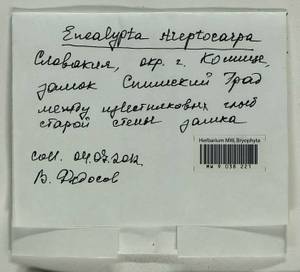 Encalypta streptocarpa
Словакия, окр. г. Кошице,
замок Спишский Град
между известняковых глыб
старой стены замка
coll. 04.07.2012
В. Федосов
Herbarium MW, Bryophyta
MW 9 038 221